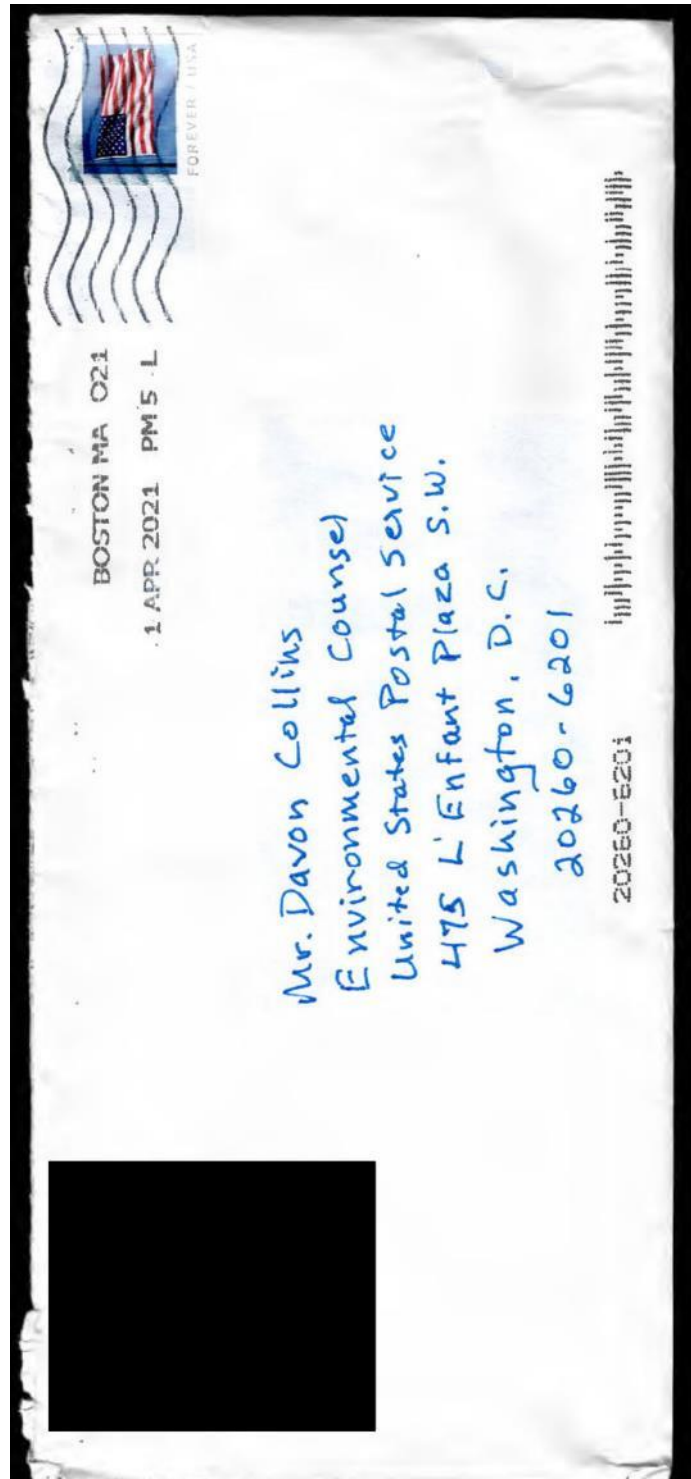 FOREVER / USA
BOSTON MA 021
1 APR 2021 PM 5 L
Mr. Davon Collins
Environmental Counsel
United States Postal Service
475 L'Enfant Plaza S.W.
Washington, D.C.
20260-6201
20260-6201